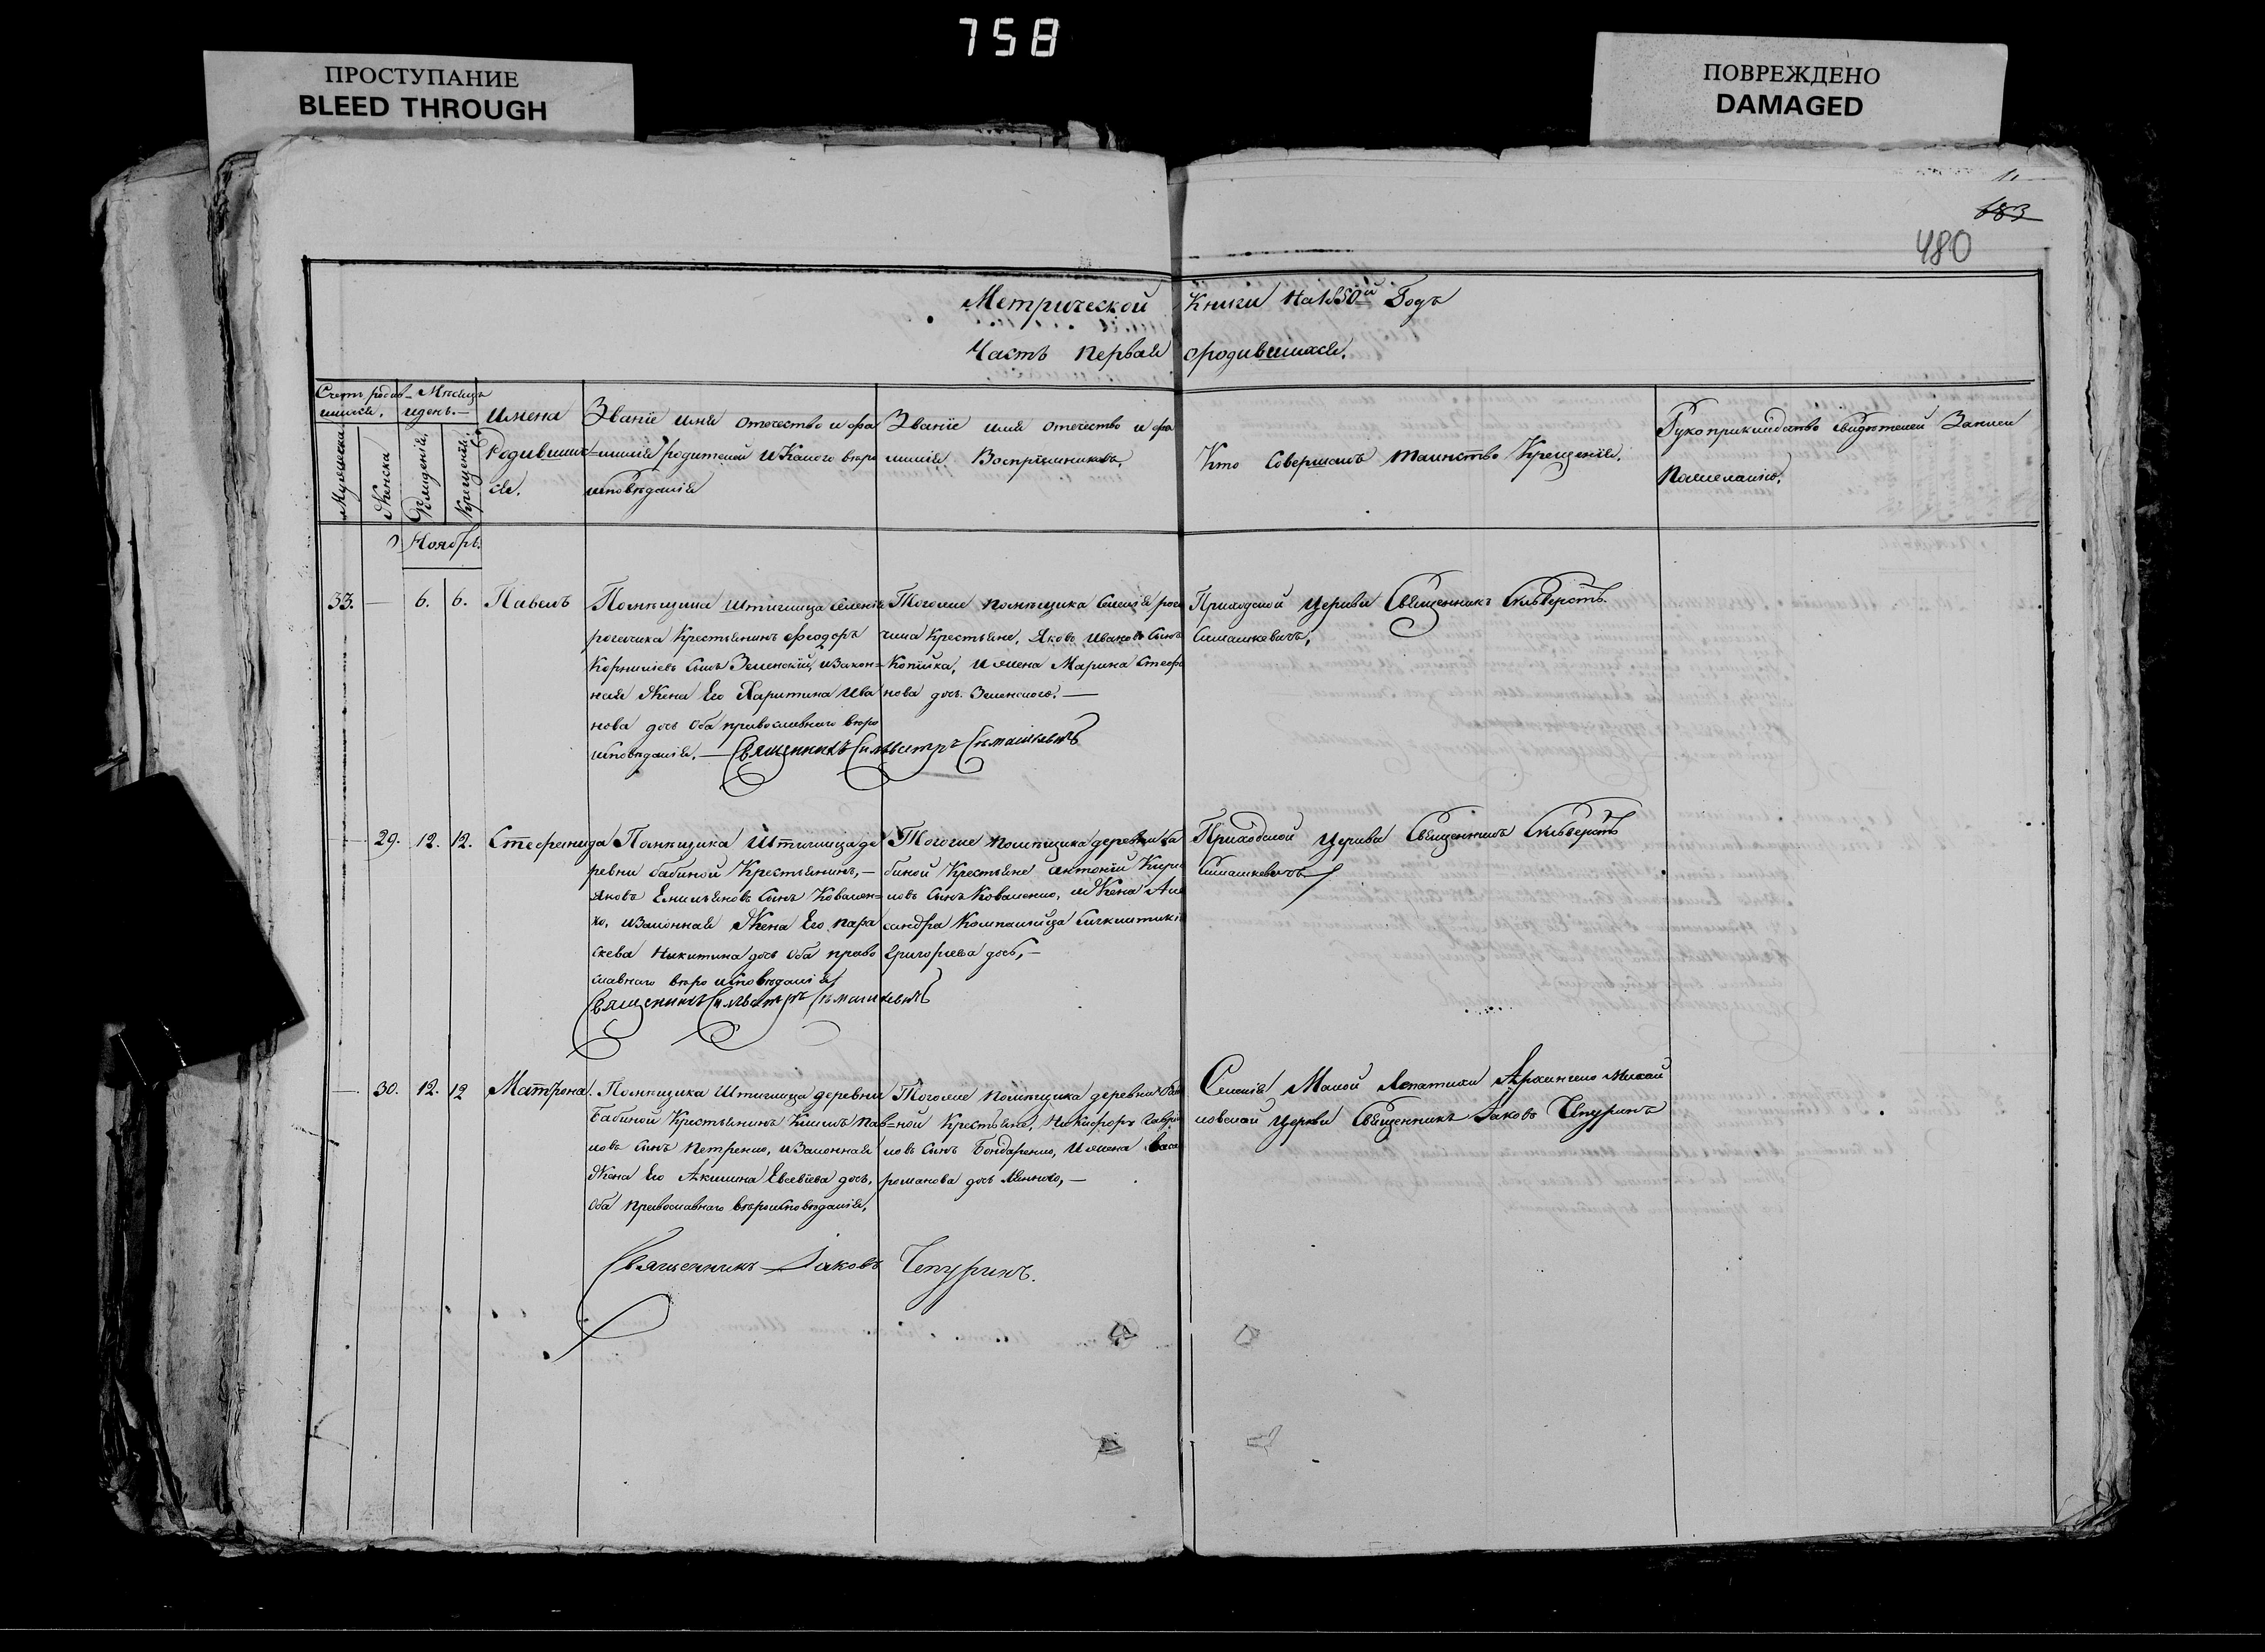 758
ПРОСТУПАНИЕ
BLEED THROUGH
ПОВРЕЖДЕНО
DAMAGED
183
480
Метрической Книги на 1850й Годъ
Часть перваяородившихся.
Счетъ родив-
шихся.
Мѣсяцъ
идень.
Мужеска
Женска
Рожденія.
Крещенія.
Имена
Родивших-
ся.
Званіе имя отечество и фа
милія родителей икакого веро
исповѣданія
Званіе имя отечество и фа
милія Воспріемниковъ.
Кто Совершалъ таинство Крещенія.
Рукоприкладство свидѣтелей Записи
пожеланію.
Ноябрь.
33. — 6. 6. Павелъ
Помѣщика Штиглица селенія
рогачика Крестьянинъ Феодоръ
Корниліевъ сынъ Зеленскій, изакон=
ная Жена Его Харитина Ива
нова дочь оба православнаго вѣро
исповѣданія. — Священникъ Сильвестръ Симашкевичъ
Тогоже помѣщика Селенія рога
чика Крестьяне, Яковъ Ивановъ Сынъ
Копійка, и жена Марина Стефа
нова дочь Зеленскаго. —
Приходской Церкви Священникъ Сильверстъ
Симашкевичъ,
— 29. 12. 12. Стефанида
Помѣщика Штиглица де
ревни бабиной Крестьянинъ, —
Яковъ Емильяновъ Сынъ Ковален=
ко, изаконная Жена Его пара
скева Никитина дочь оба право
славнаго вѣро исповѣданія
Священникъ Сильвестръ Симашкевичъ
Тогоже помѣщика деревни ба
биной Крестьяне Антоній Кири
ловъ Сынъ Коваленко, и Жена Але
ксандра Компанійца
Григорьева дочь, —
Приходской Церкви Священникъ Сильверстъ
Симашкевичъ
— 30. 12. 12 Матрона.
Помѣщика Штиглица деревни
Бабиной Крестьянинъ Павло=
новъ сынъ Петренко, изаконная
Жена Его Акилина Евсевіева дочь,
оба православнаго вѣроисповѣданія,
Священникъ Іаковъ Чепуринъ.
Тогоже помѣщика деревни Баби
ной Крестьяне, Никифоръ Гаври
ловъ Сынъ Бондаренко, и жена
романова дочь —
Селенія Малой Лепатихи Архангело Михай
ловской Церкви Священникъ Іаковъ Чепуринъ